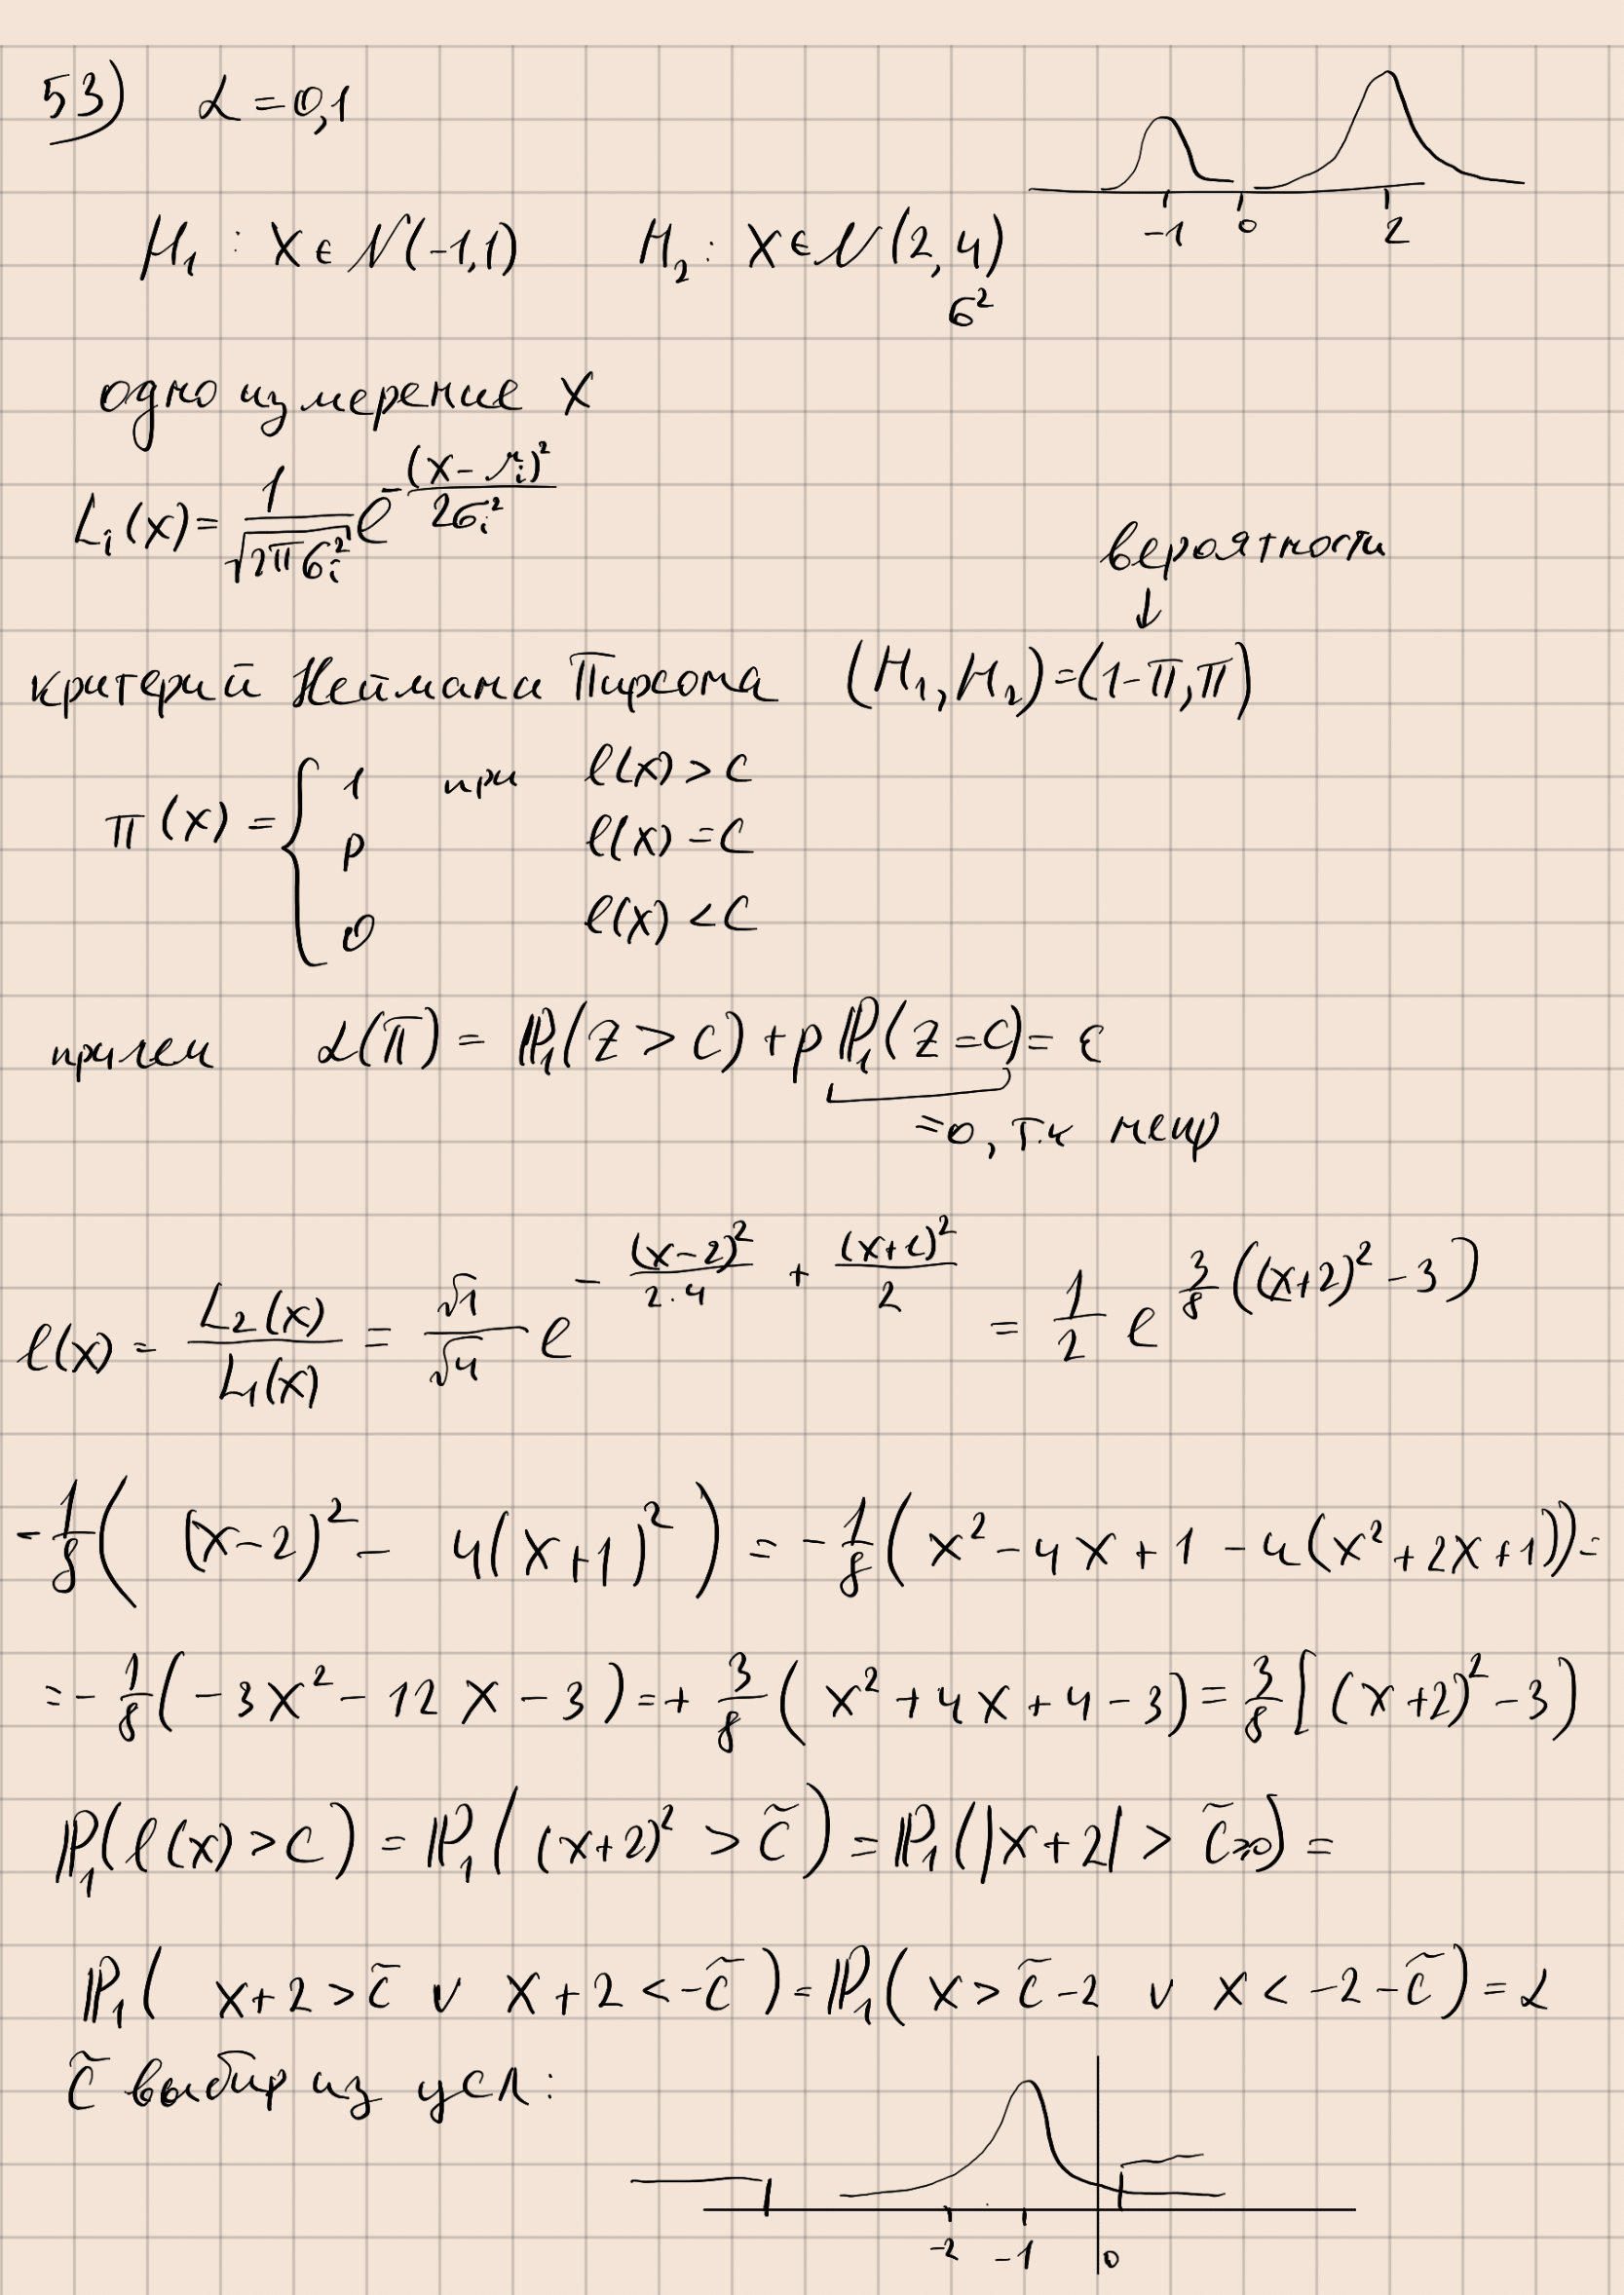 53) α = 0,1
-1 0 2
H₁ : X ∈ N(-1,1) H₂ : X ∈ N(2,4)
σ²
одно измерение X
Lᵢ(x) = 1/√(2πσᵢ²) e^(-(x-μᵢ)²/(2σᵢ²))
вероятности
↓
критерий Неймана Пирсона (H₁, H₂) = (1-π, π)
π(x) = { 1 при l(x) > C
p l(x) = C
0 l(x) < C
причем α(π) = ℙ₁(Z > C) + p ℙ₁(Z = C) = ε
=0, т.к непр
l(x) = L₂(x)/L₁(x) = √1/√4 e^(-(x-2)²/(2·4) + (x+1)²/2) = 1/2 e^(3/8((x+2)² - 3))
-1/8( (x-2)² - 4(x+1)² ) = -1/8( x² - 4x + 1 - 4(x² + 2x + 1)) =
= -1/8( -3x² - 12x - 3 ) = + 3/8( x² + 4x + 4 - 3) = 3/8[ (x+2)² - 3)
ℙ₁(l(x) > C) = ℙ₁( (x+2)² > C̃ ) = ℙ₁(|x+2| > C̃ ≥ 0) =
ℙ₁( x+2 > C̃ ∨ x+2 < -C̃ ) = ℙ₁( x > C̃-2 ∨ x < -2-C̃ ) = α
C̃ выбир из усл:
-2 -1 0